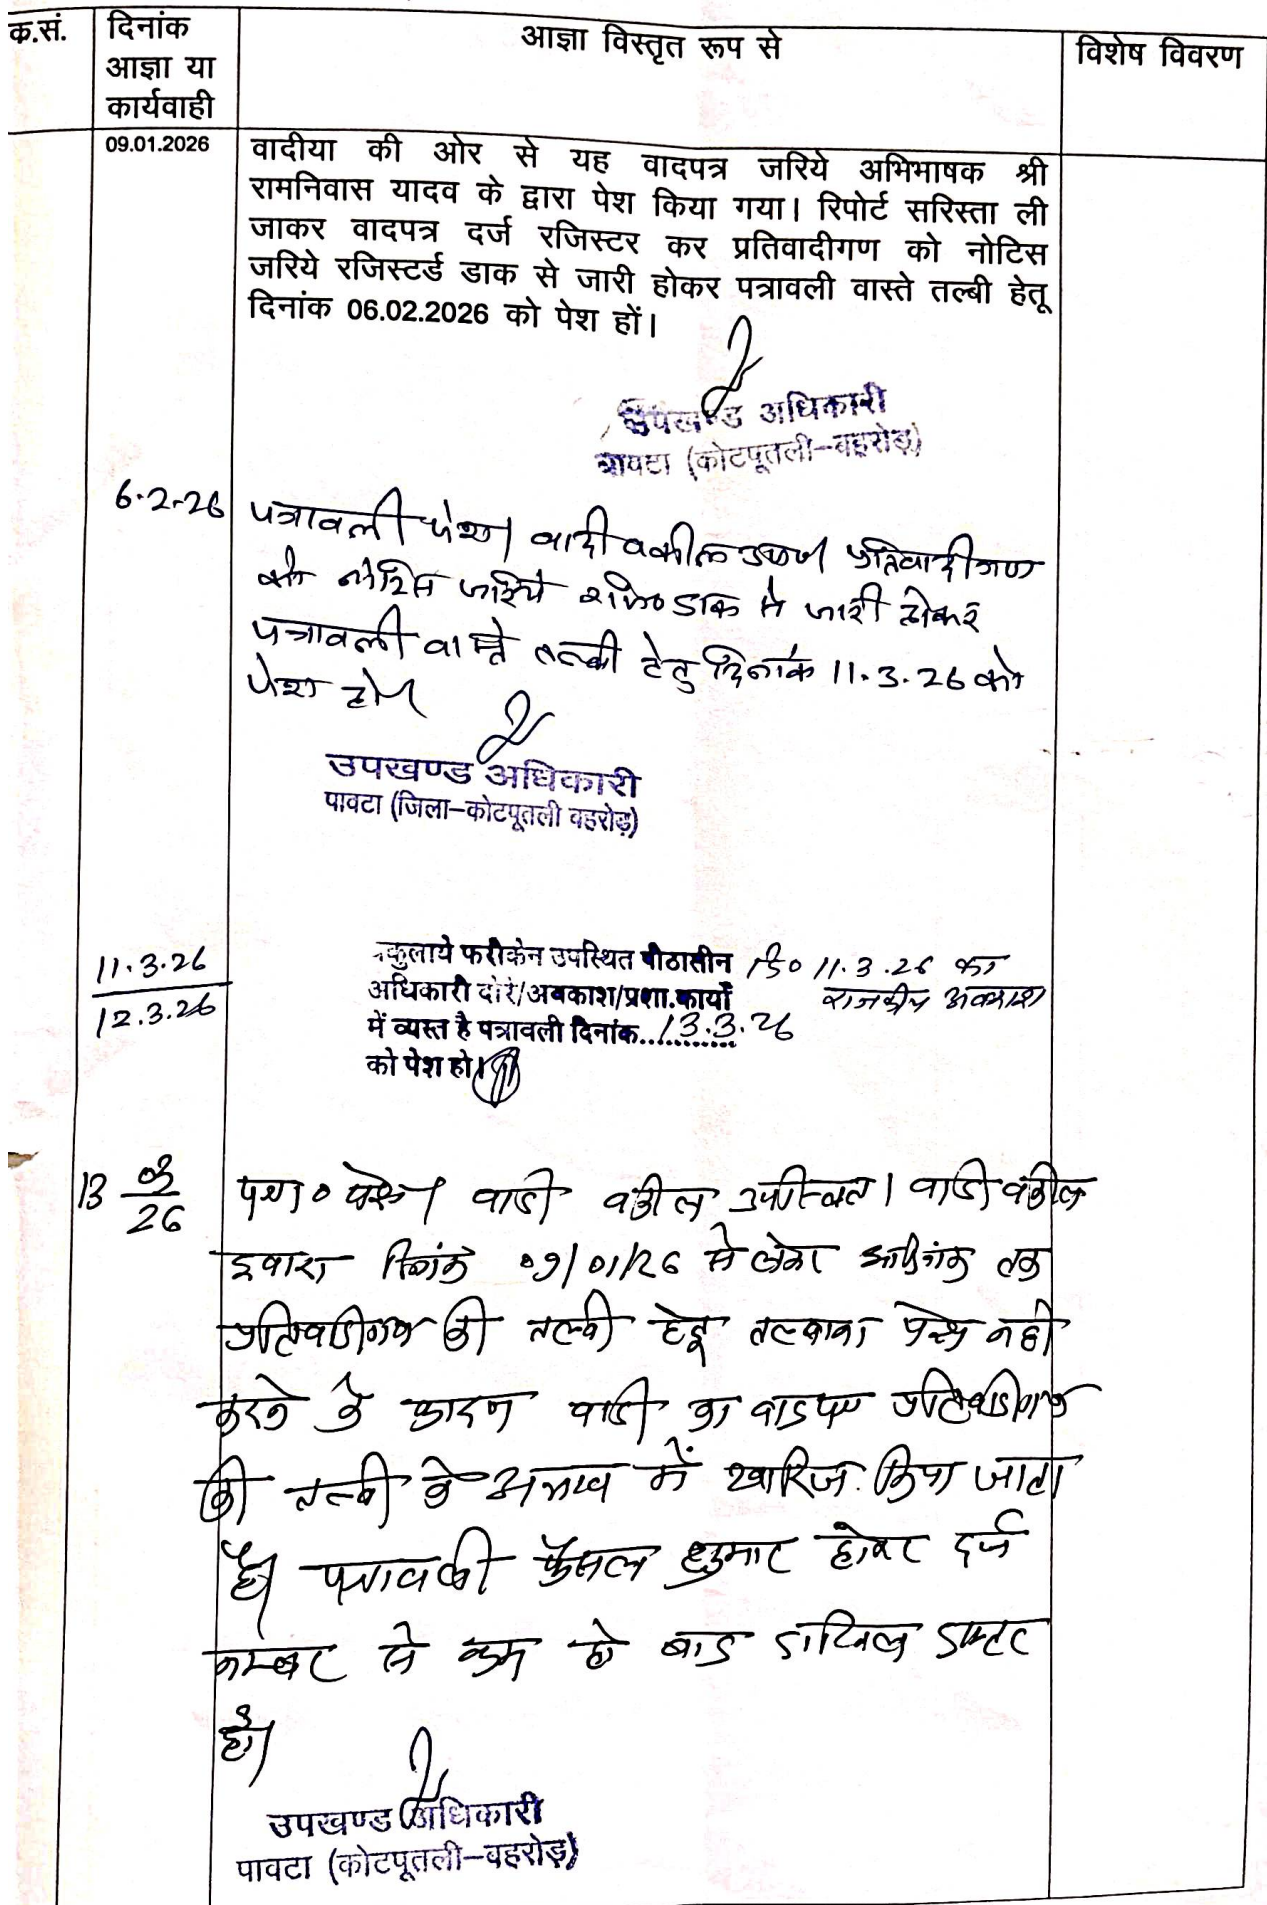 क.सं.
दिनांक
आज्ञा या
कार्यवाही
आज्ञा विस्तृत रूप से
विशेष विवरण
09.01.2026
वादीया की ओर से यह वादपत्र जरिये अभिभाषक श्री
रामनिवास यादव के द्वारा पेश किया गया। रिपोर्ट सरिस्ता ली
जाकर वादपत्र दर्ज रजिस्टर कर प्रतिवादीगण को नोटिस
जरिये रजिस्टर्ड डाक से जारी होकर पत्रावली वास्ते तल्बी हेतू
दिनांक 06.02.2026 को पेश हों।
उपखण्ड अधिकारी
पावटा (कोटपूतली–बहरोड़)
6.2.26
पत्रावली पेश। वादी वकील उप० प्रतिवादीगण
को नोटिस जरिये रजि० डाक से जारी होकर
पत्रावली वास्ते तल्बी हेतु दिनांक 11.3.26 को
पेश हो।
उपखण्ड अधिकारी
पावटा (जिला–कोटपूतली बहरोड़)
11.3.26
12.3.26
वकुलाये फरीकेन उपस्थित पीठासीन
अधिकारी दौरे/अवकाश/प्रशा.कार्यों
में व्यस्त है पत्रावली दिनांक...13.3.26
को पेश हो।
दि० 11.3.26 का
राजकीय अवकाश
13 03/26
पत्रा० पेश। वादी वकील उपस्थित। वादी वकील
द्वारा दिनांक 09/01/26 से लेकर आदिनांक तक
प्रतिवादीगण की तल्बी हेतु तलबाना पेश नही
करने के कारण वादी का वादपत्र प्रतिवादीगण
की तल्बी के अभाव में खारिज किया जाता
है। पत्रावली फैसल शुमार होकर दर्ज
नम्बर से कम हो बाद दाखिल दफ्तर
हो।
उपखण्ड अधिकारी
पावटा (कोटपूतली–बहरोड़)